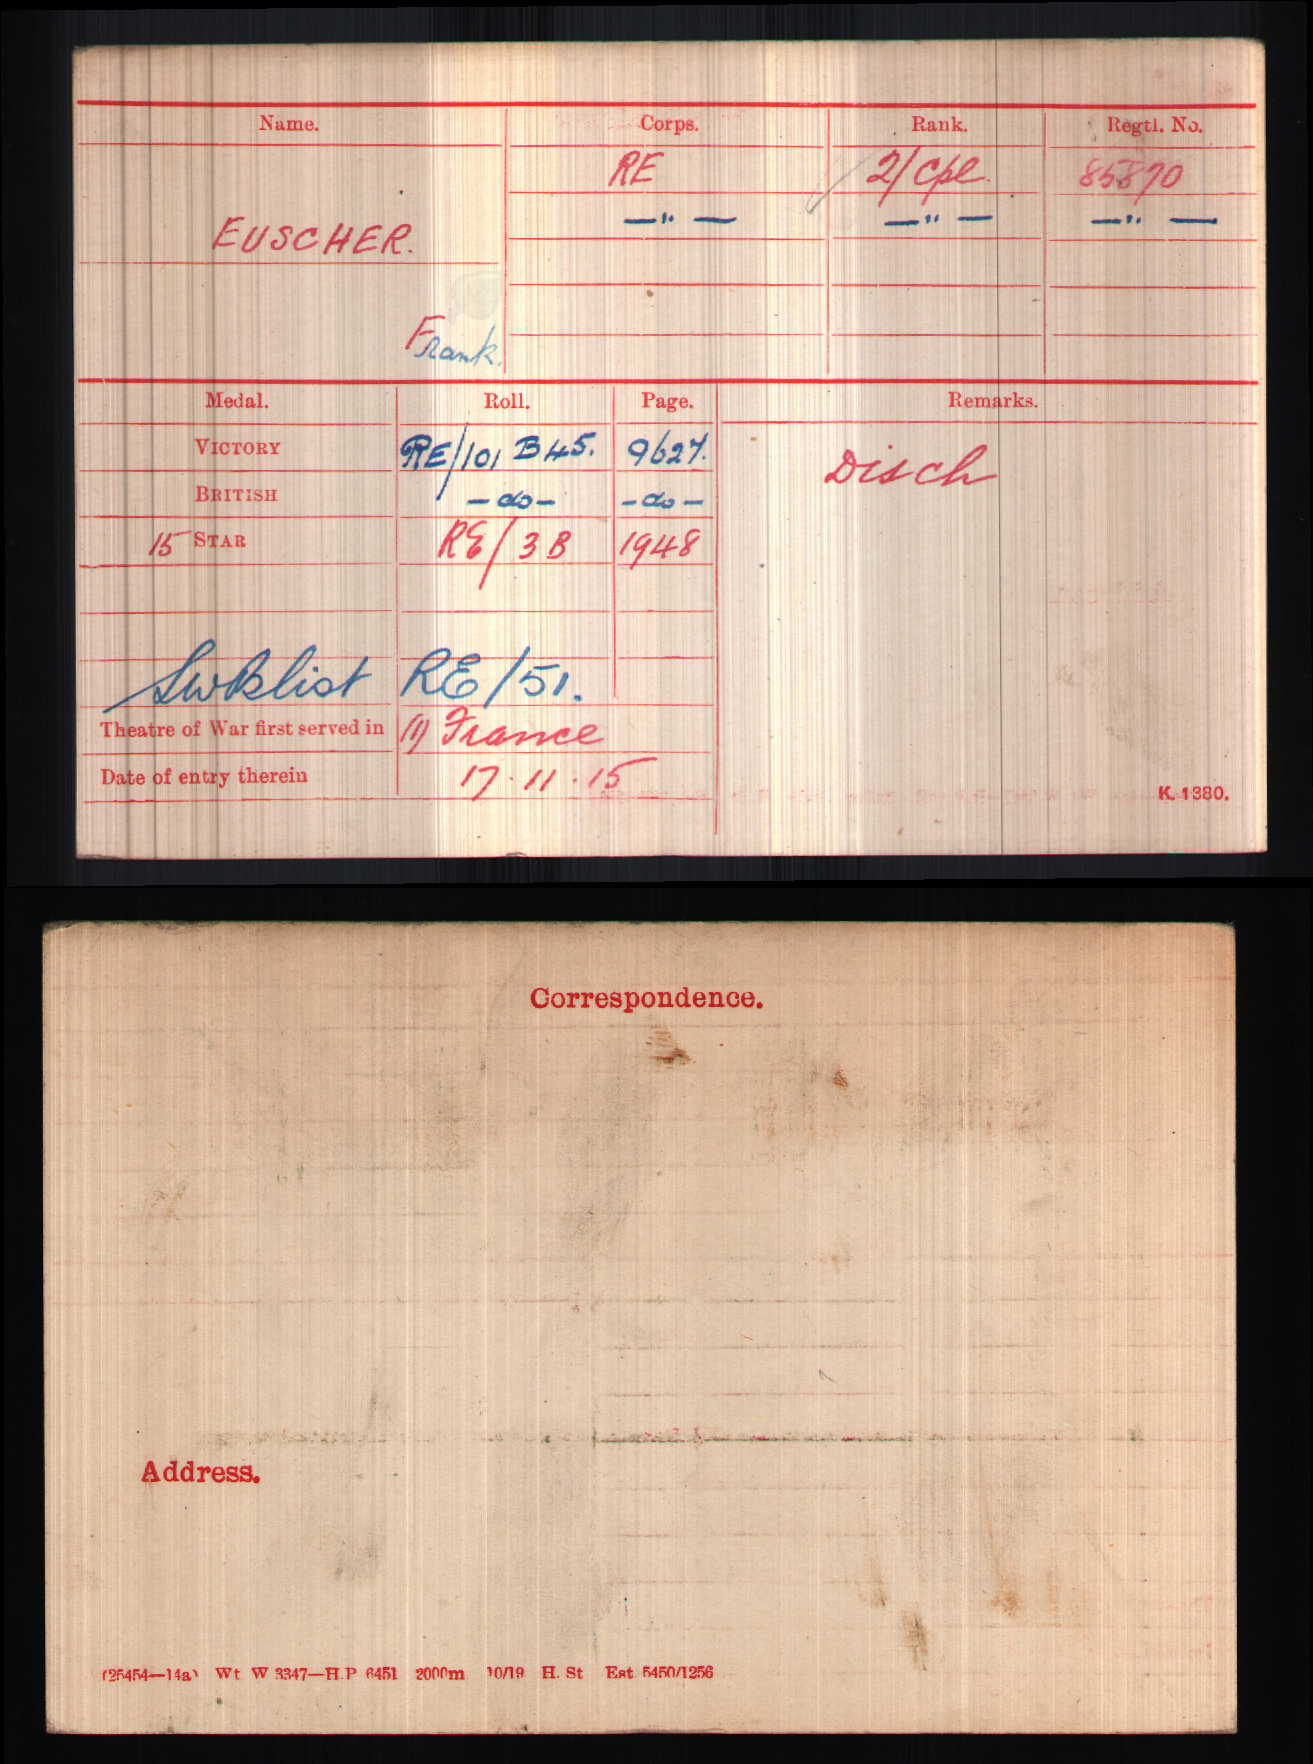 Name. Corps. Rank. Regtl. No.
RE 2/Cpl. 85870
—"— —"— —"—
EUSCHER.
Frank.
Medal. Roll. Page. Remarks.
VICTORY RE/101 B45. 9627. Disch
BRITISH -do- -do-
15 STAR RE/3B 1948
SWB list RE/51.
Theatre of War first served in (1) France
Date of entry therein 17.11.15
K. 1380.
Correspondence.
Address.
(25454—14a) Wt W 3347—H.P 6451 2000m 10/19 H. St Est. 5450/1256